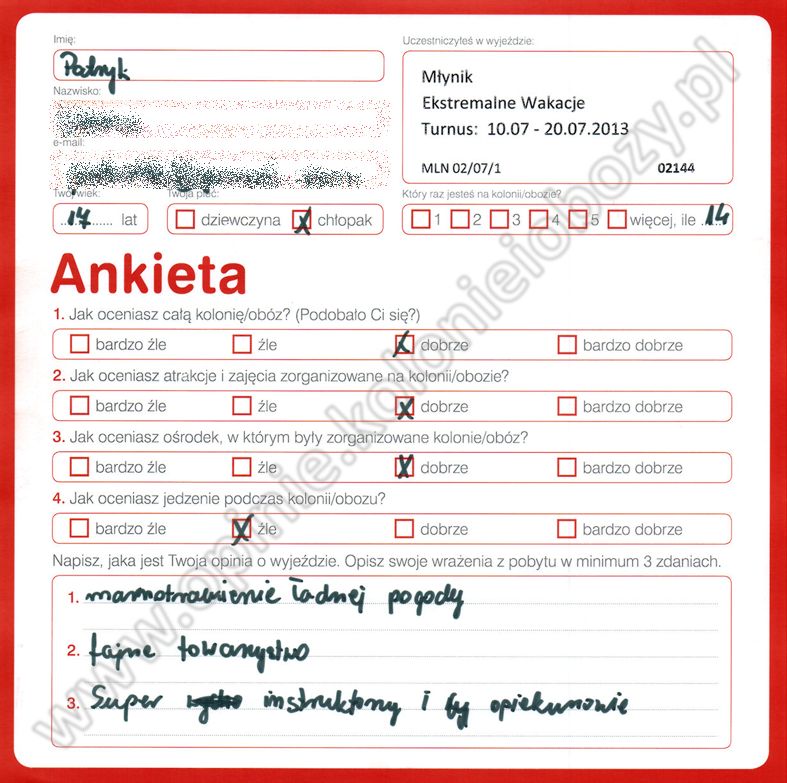 Imię:
Patryk
Uczestniczyłeś w wyjeździe:
Młynik
Ekstremalne Wakacje
Turnus: 10.07 - 20.07.2013
MLN 02/07/1 02144
Nazwisko:
e-mail:
Twój wiek:
17 lat
Twoja płeć:
dziewczyna X chłopak
Który raz jesteś na kolonii/obozie?
1 2 3 4 5 więcej, ile 14
Ankieta
1. Jak oceniasz całą kolonię/obóz? (Podobało Ci się?)
bardzo źle źle X dobrze bardzo dobrze
2. Jak oceniasz atrakcje i zajęcia zorganizowane na kolonii/obozie?
bardzo źle źle X dobrze bardzo dobrze
3. Jak oceniasz ośrodek, w którym były zorganizowane kolonie/obóz?
bardzo źle źle X dobrze bardzo dobrze
4. Jak oceniasz jedzenie podczas kolonii/obozu?
bardzo źle X źle dobrze bardzo dobrze
Napisz, jaka jest Twoja opinia o wyjeździe. Opisz swoje wrażenia z pobytu w minimum 3 zdaniach.
1. marnotrawienie ładnej pogody
2. fajne towarzystwo
3. Super instruktorzy i opiekunowie
www.opinie.kolonieiobozy.pl